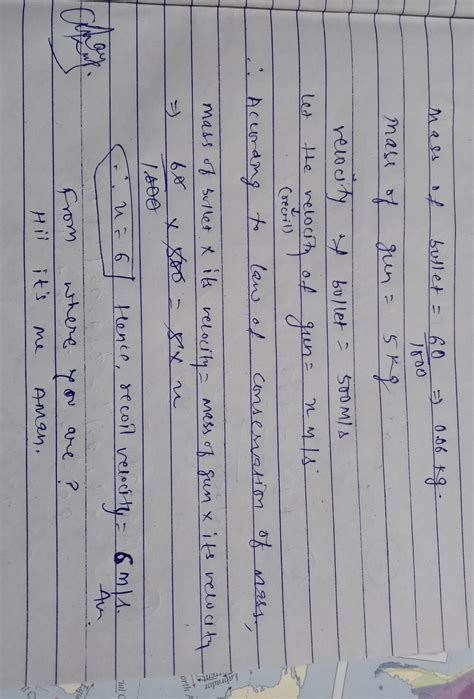 Mass of bullet = 60/1000 ⇒ 0.06 kg.
Mass of gun = 5 kg
velocity of bullet = 500 M/s
let the velocity of gun = x m/s.
(recoil)
∴ According to law of conservation of mass,
mass of bullet x its velocity = mass of gun x its velocity
⇒ 60/1000 x 500 = 5 x x
∴ x = 6 Hence, recoil velocity = 6 m/s.
From where you are ?
Hii it's me AMAN.
Labrador